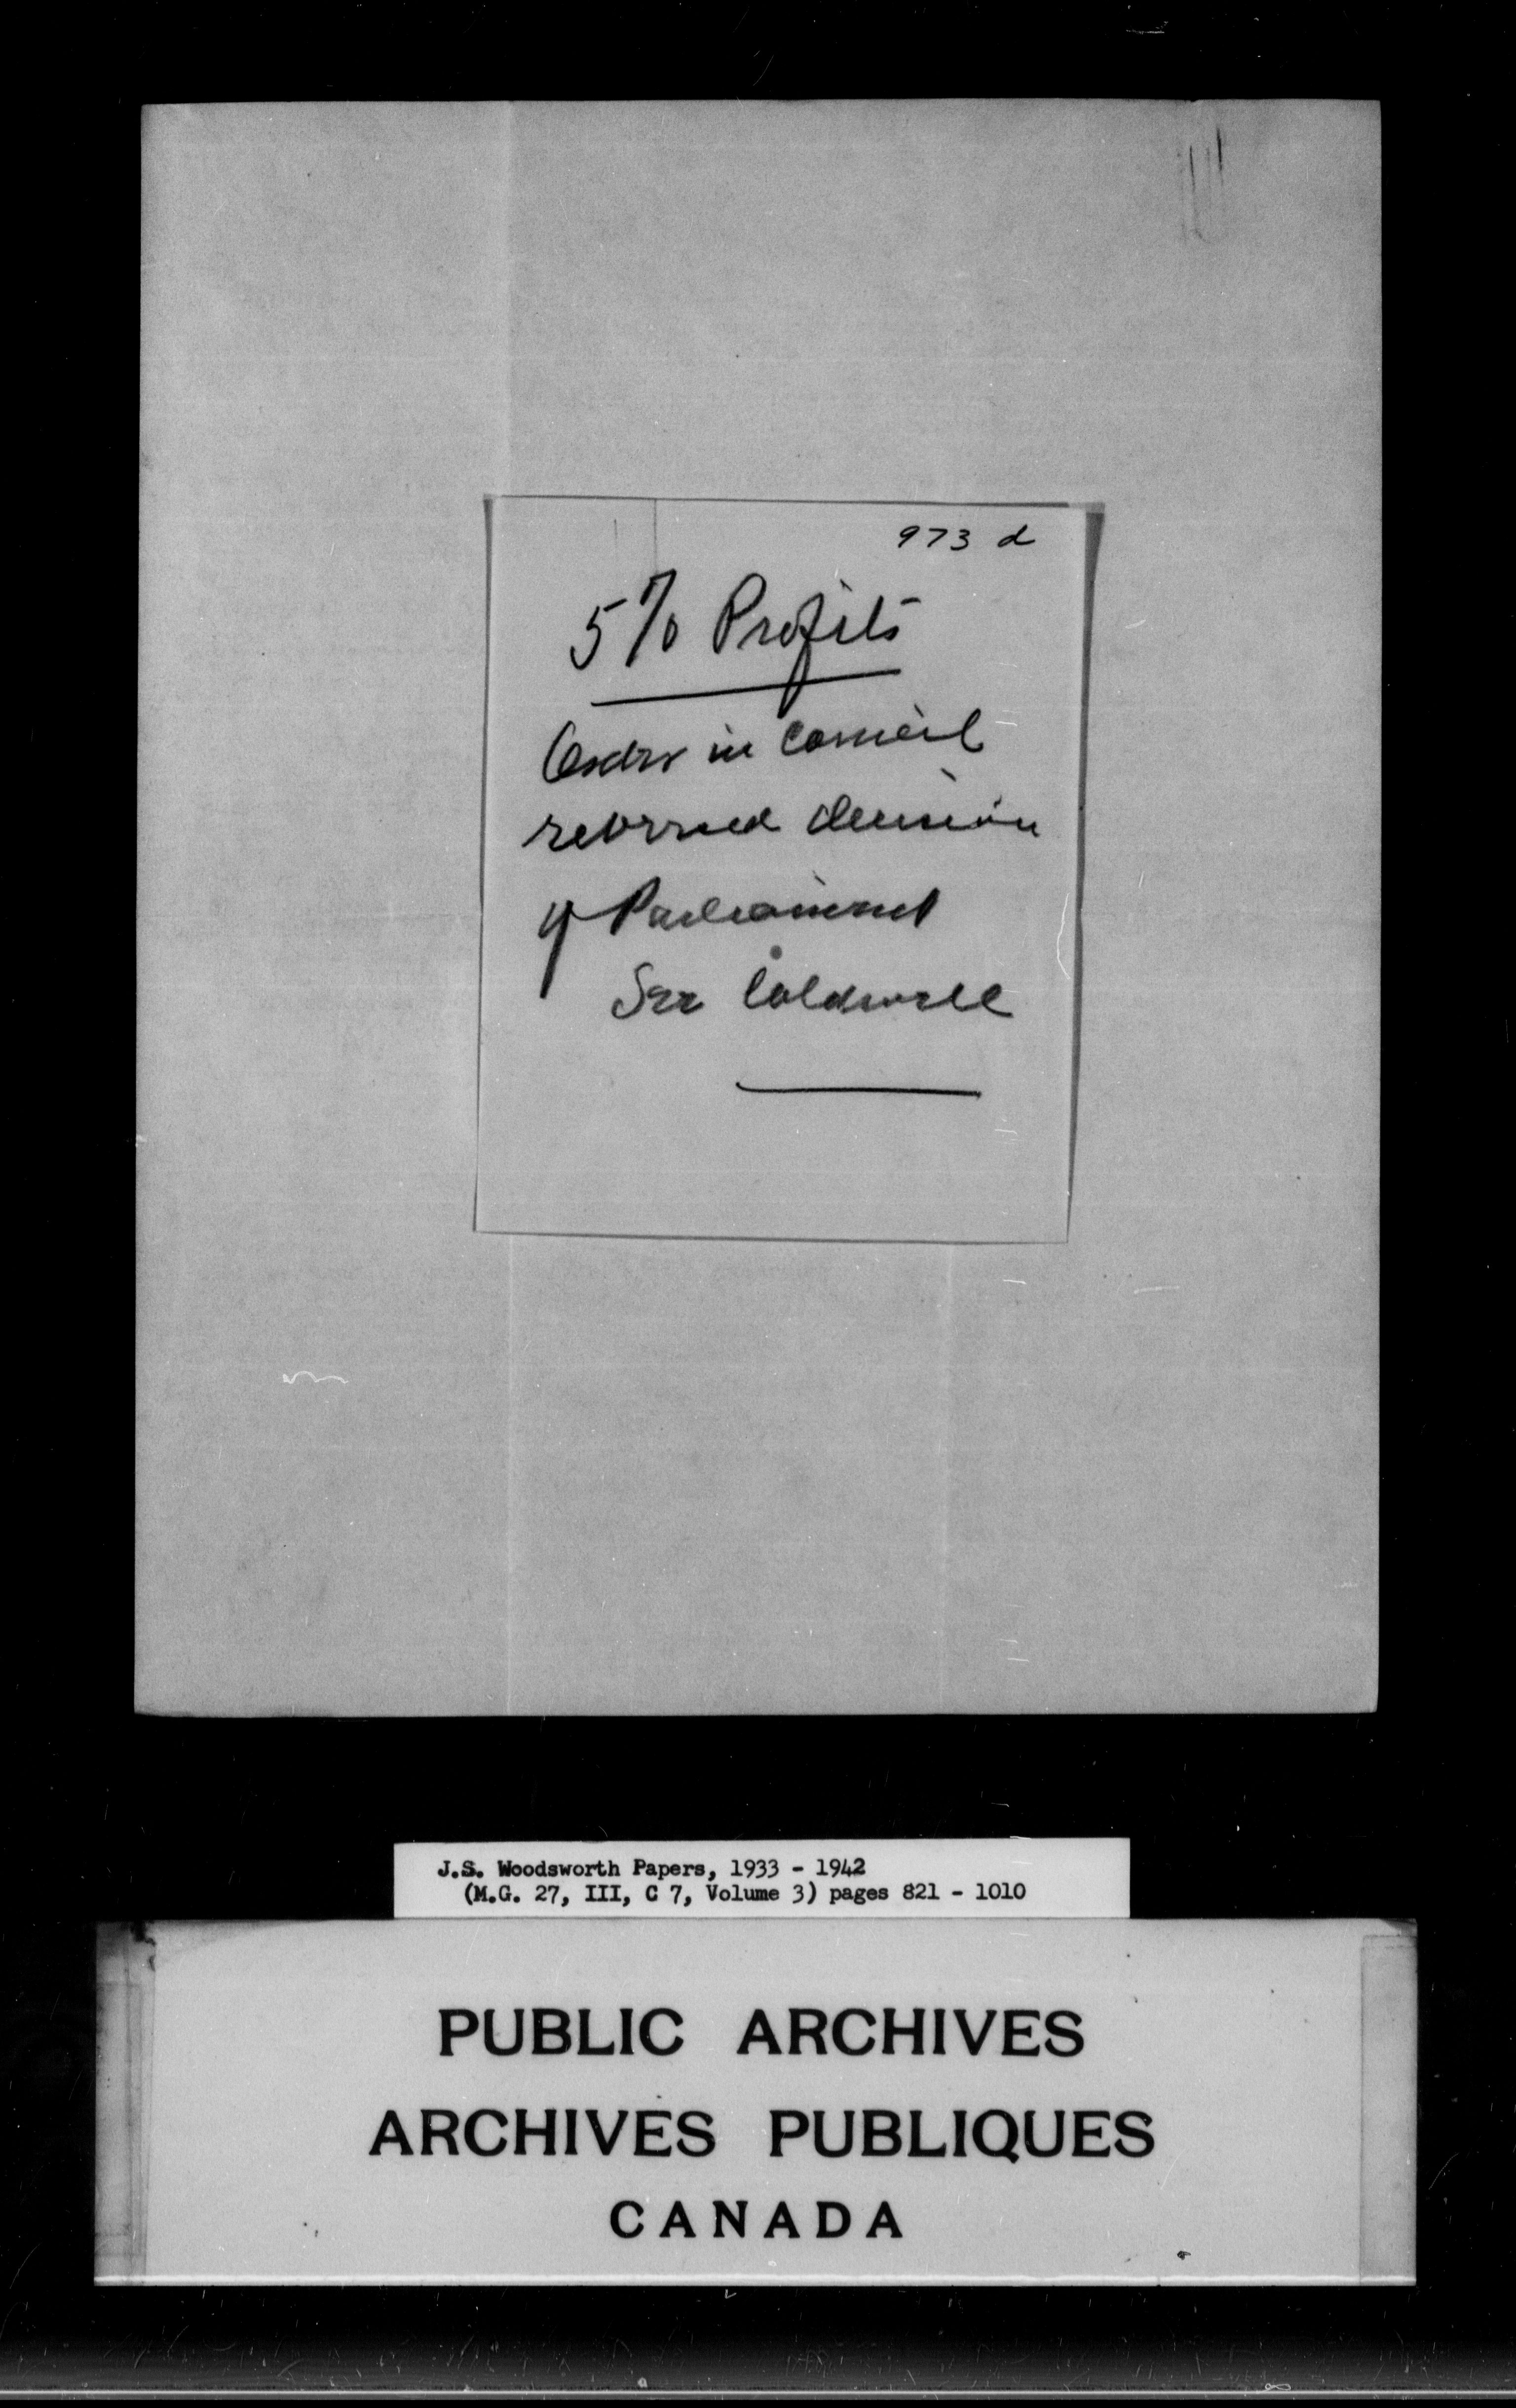 973 d
5% Profits
Order in Council
reversed decision
of Parliament
See Coldwell
J.S. Woodsworth Papers, 1933 - 1942
(M.G. 27, III, C 7, Volume 3) pages 821 - 1010
PUBLIC ARCHIVES
ARCHIVES PUBLIQUES
CANADA